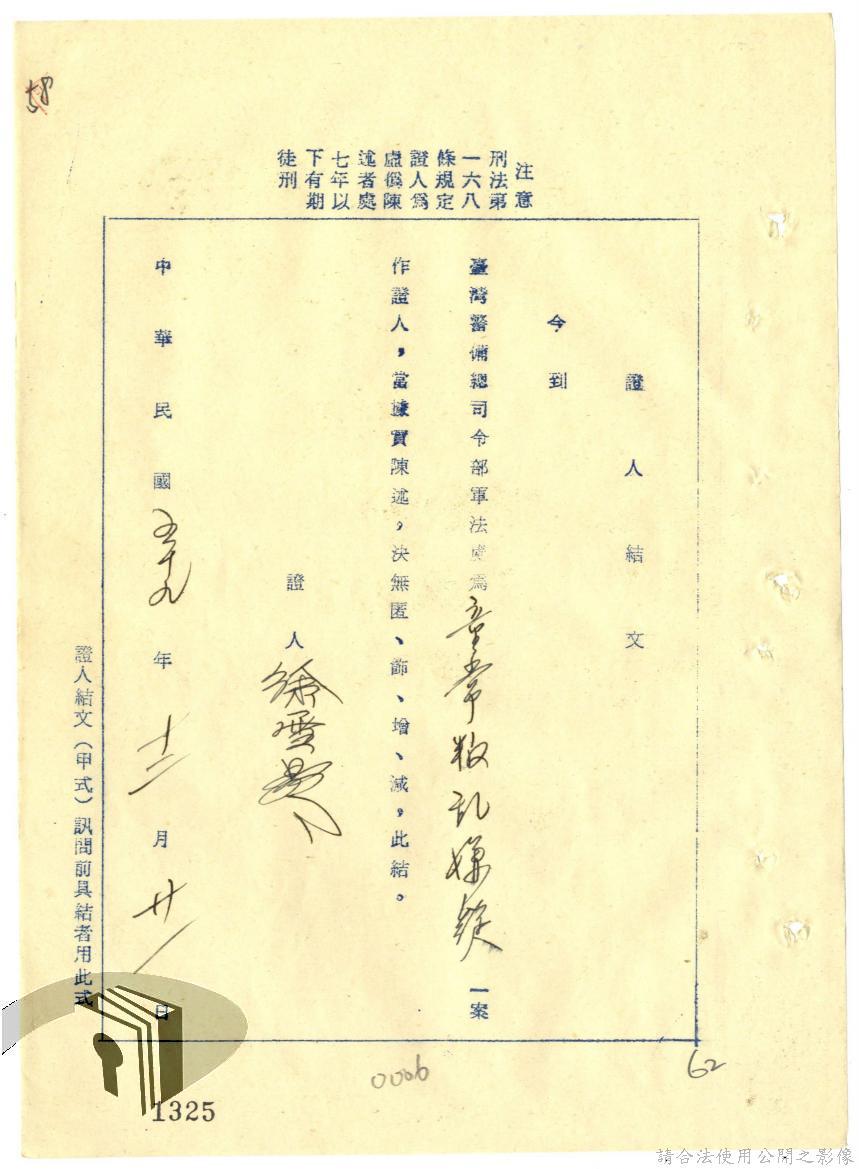 58
注意
刑法第
一六八
條規定
證人爲
虛僞陳
述者處
七年以
下有期
徒刑
證人結文
今到
臺灣警備總司令部軍法處爲童常叛乱嫌疑一案
作證人，當據實陳述，決無匿、飾、增、減，此結。
證人 徐雪
中華民國五十九年十二月廿一日
證人結文（甲式）訊問前具結者用此式
0006
62
1325
請合法使用公開之影像